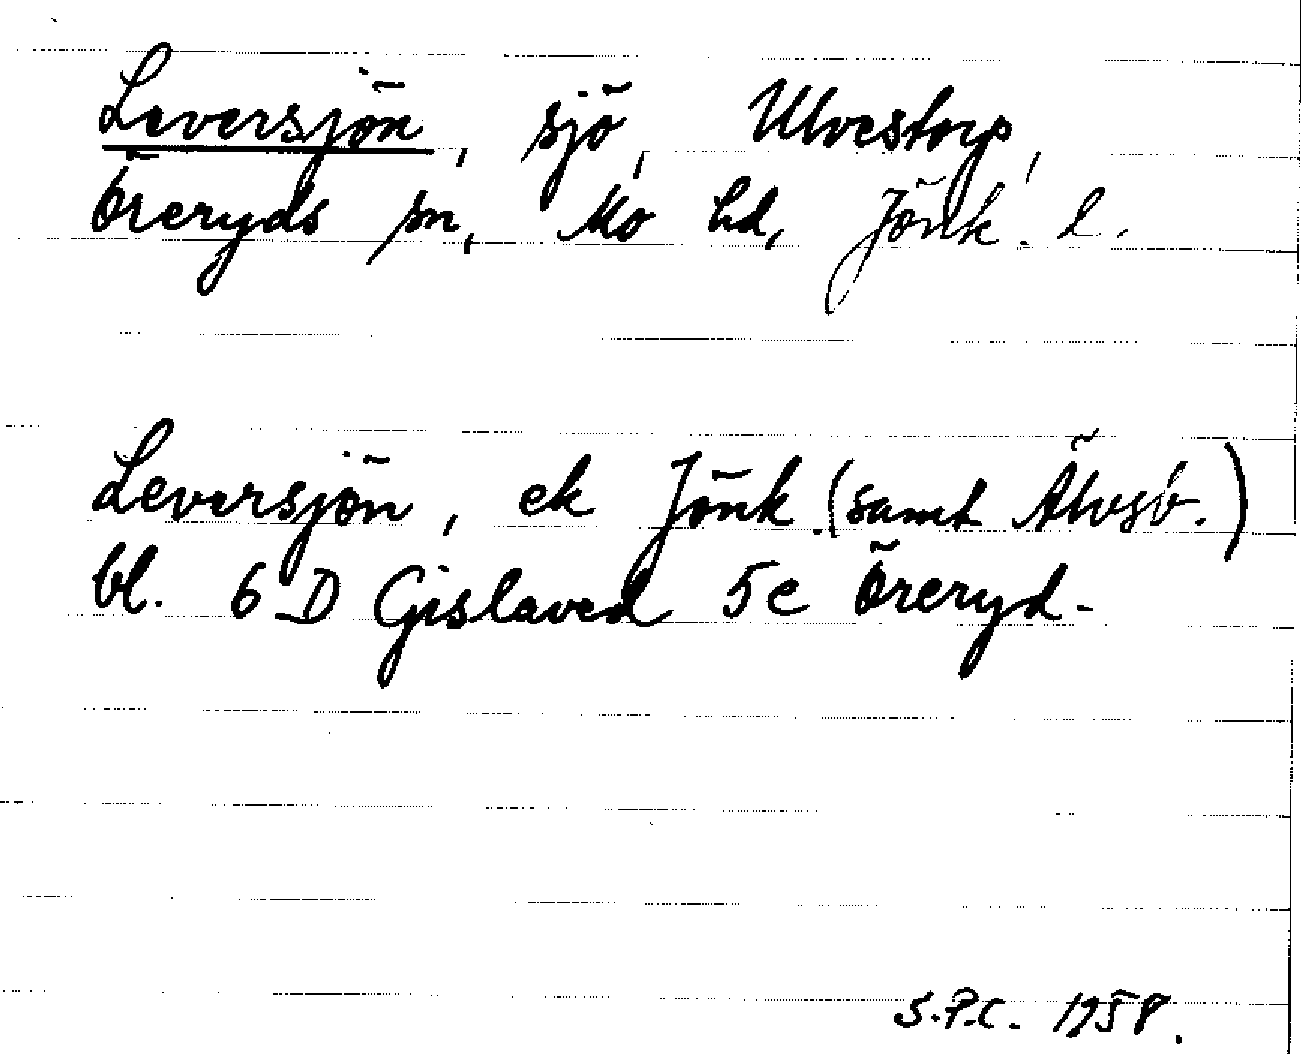 Leversjön, sjö, Ulvestorp,
Öreryds sn, Mo hd, Jönk. l.
Leversjön, ek Jönk. (samt Älvsb.)
bl. 6 D Gislaved 5c Öreryd.
S.P.C. 1958.